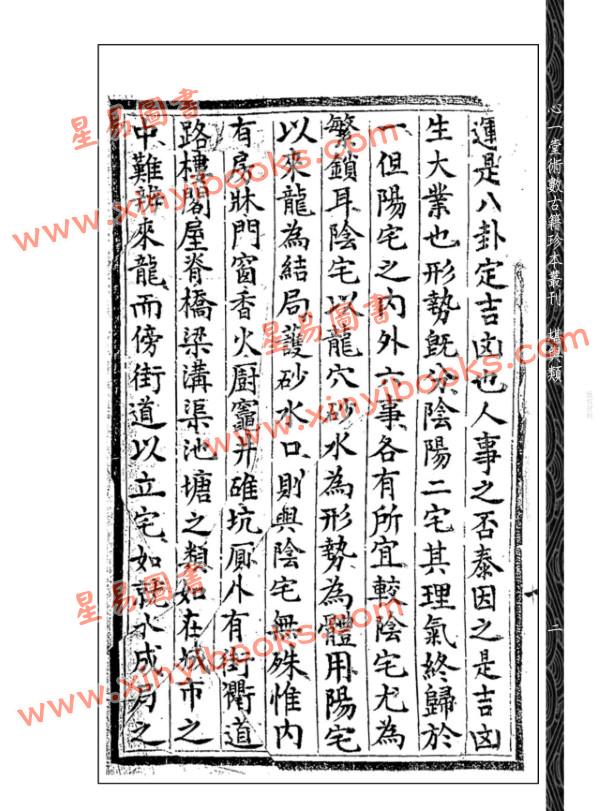 運是八卦定吉凶也人事之否泰因之是吉凶
生大業也形勢既分陰陽二宅其理氣終歸於
一但陽宅之內外六事各有所宜較陰宅尤為
繁鎖耳陰宅以龍穴砂水為形勢為體用陽宅
以來龍為結局護砂水口則與陰宅無殊惟內
有房牀門窗香火厨竈井碓坑厠外有街衢道
路樓閣屋脊橋梁溝渠池塘之類如在城市之
中難辨來龍而傍街道以立宅如就水成局之
心一堂術數古籍珍本叢刊 堪輿類
二
星易圖書
www.xinyibooks.com
星易圖書
www.xinyibooks.com
星易圖書
www.xinyibooks.com